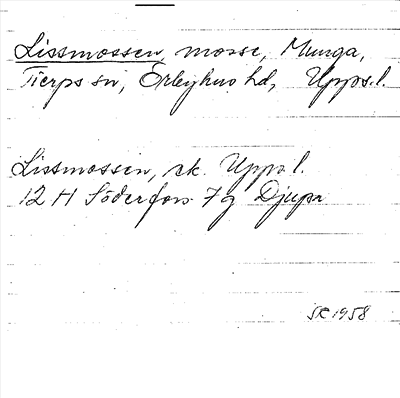 Lissmossen, mosse, Munga,
Tierps sn, Örbyhus hd, Upps.l.
Lissmossen, ek. Upps l.
12 H Söderfors 7 g Djupa
SR 1958